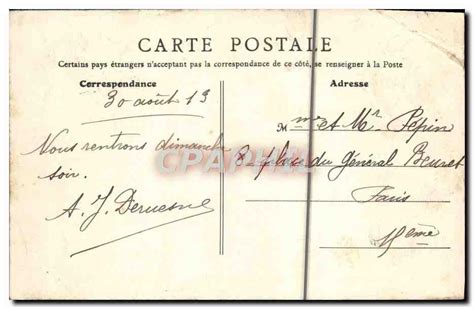 CARTE POSTALE
Certains pays étrangers n'acceptant pas la correspondance de ce côté, se renseigner à la Poste
Correspondance
Adresse
30 août 13
Nous rentrons dimanche
soir.
A. J. Deruesne
Mme et Mr Pépin
8 place du Général Beuret
Paris
15eme
CPAPHIL